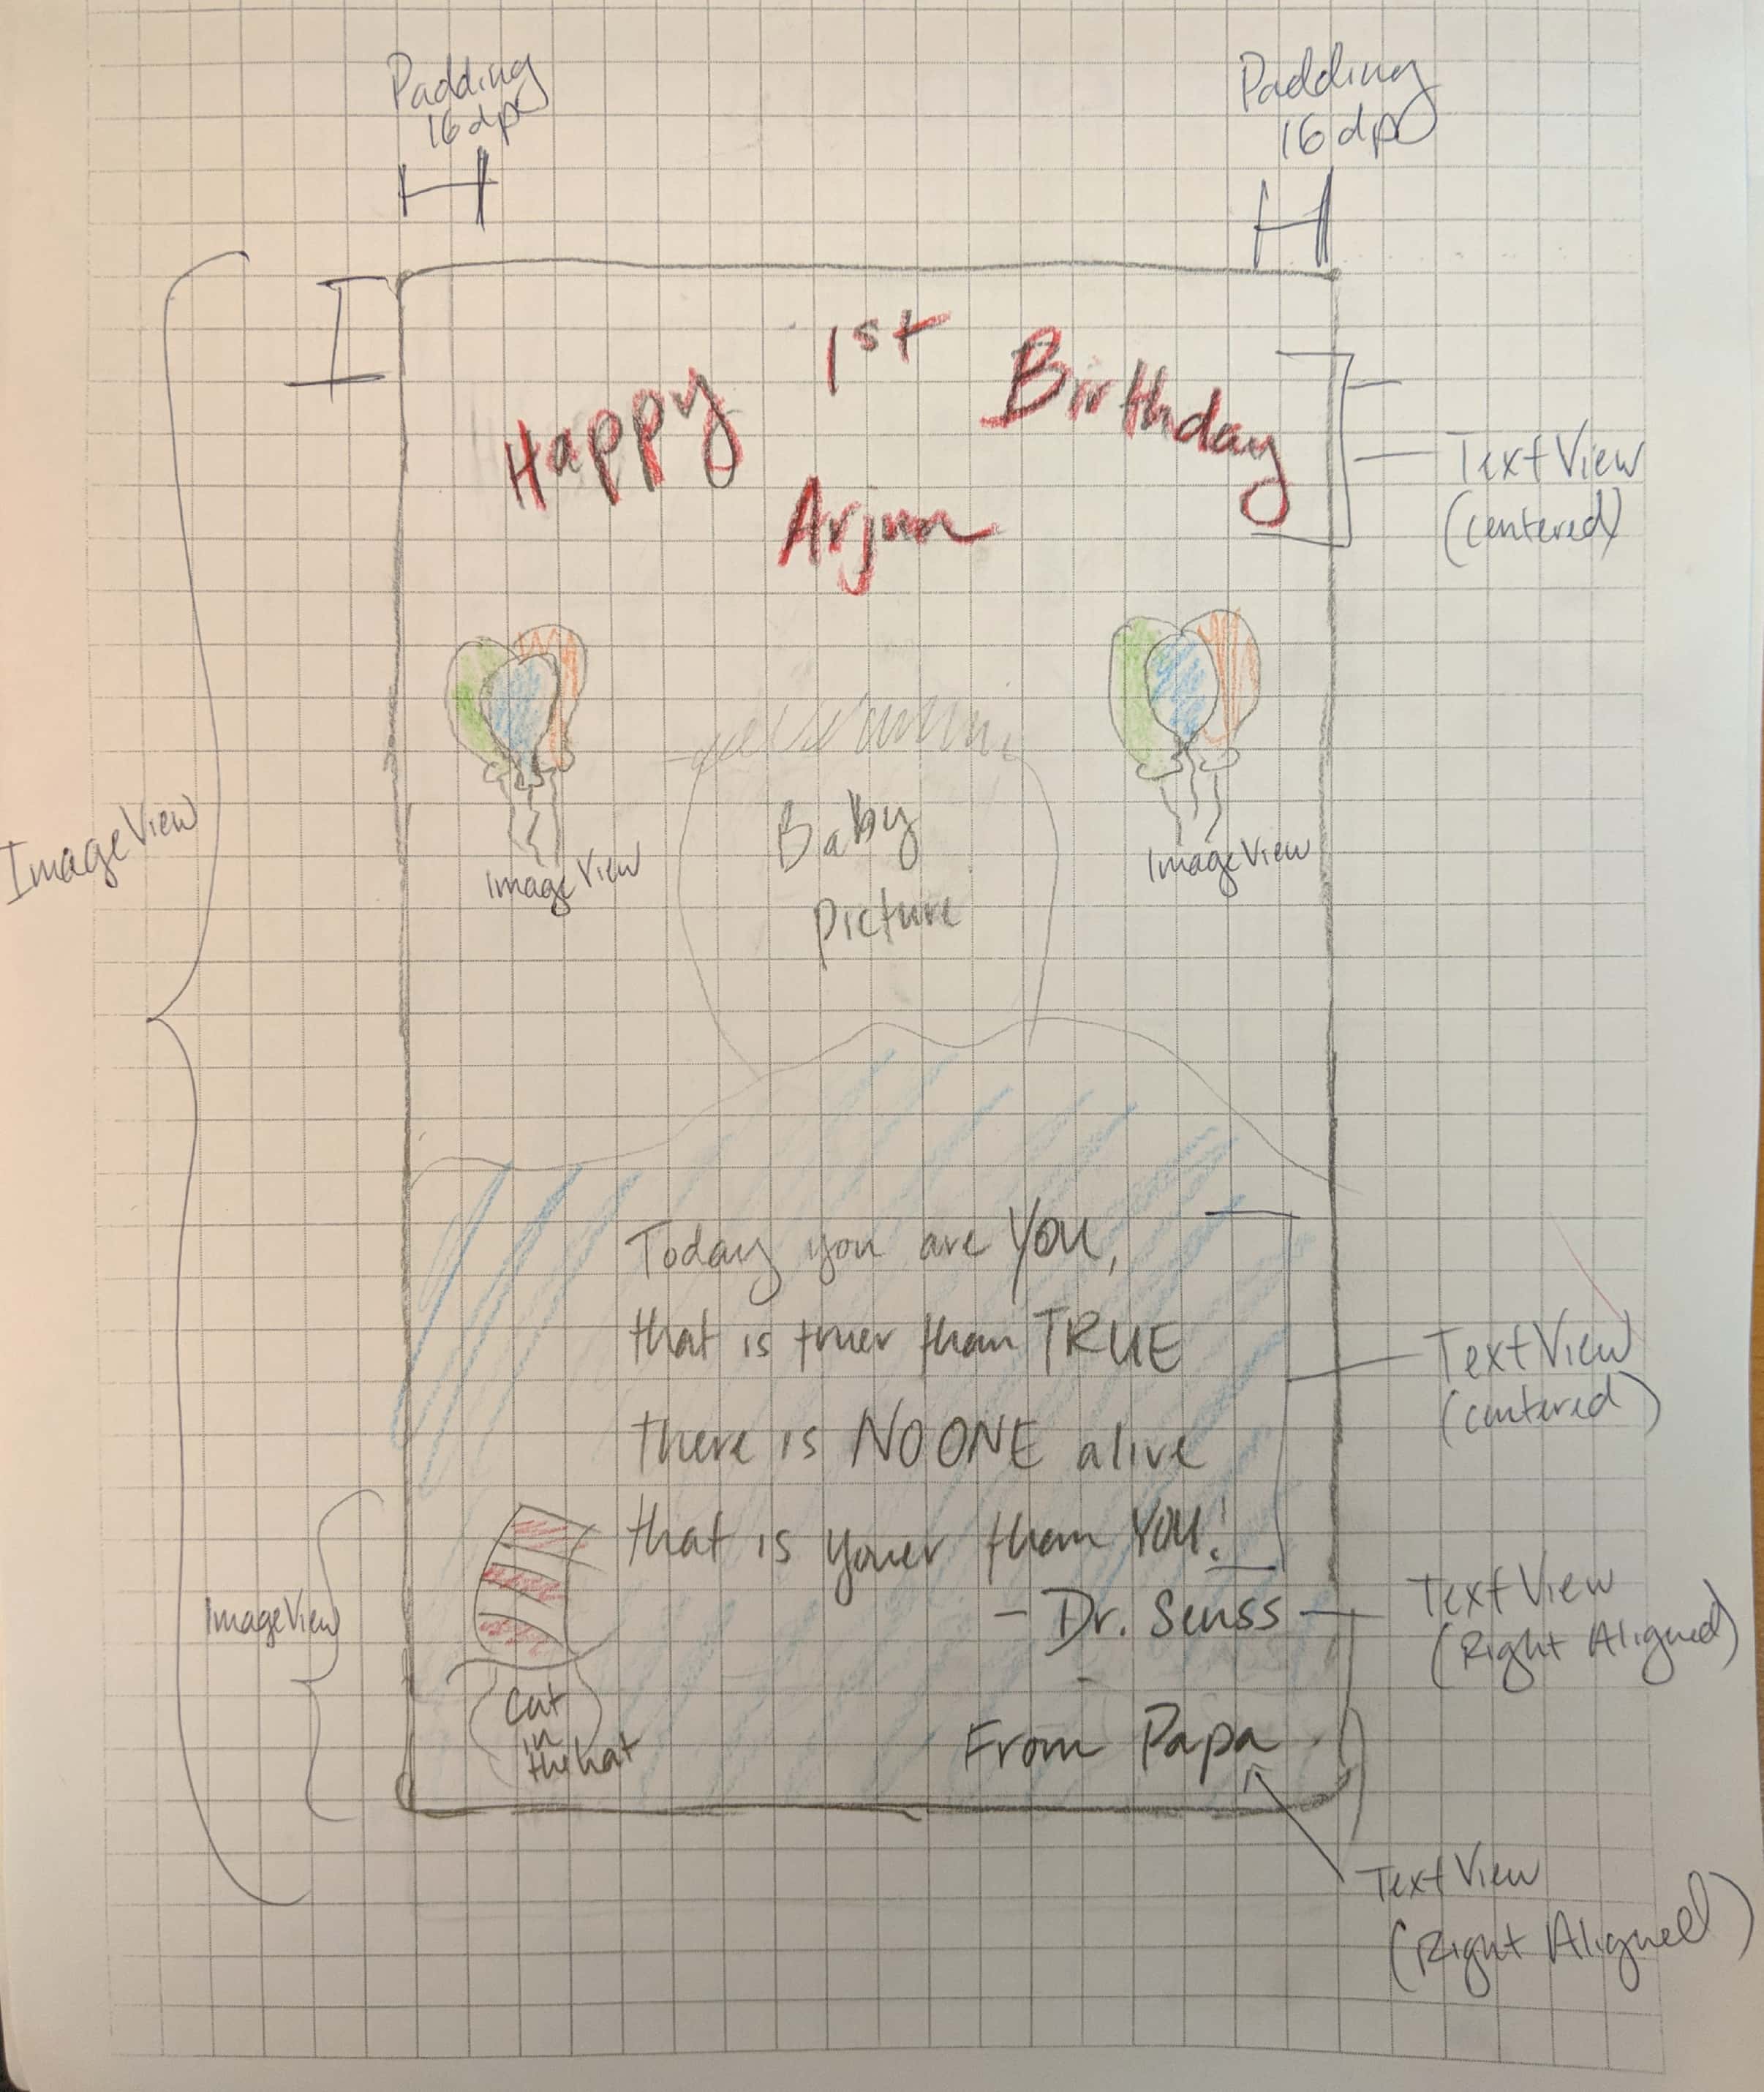 Padding
16dp
Padding
16dp
Happy 1st Birthday
Arjun
TextView
(centered)
ImageView
ImageView
Baby
Picture
ImageView
Today you are YOU,
that is truer than TRUE
there is NO ONE alive
that is youer than YOU!
TextView
(centered)
- Dr. Seuss
TextView
(Right Aligned)
ImageView
Cat
in
the hat
From Papa
TextView
(Right Aligned)